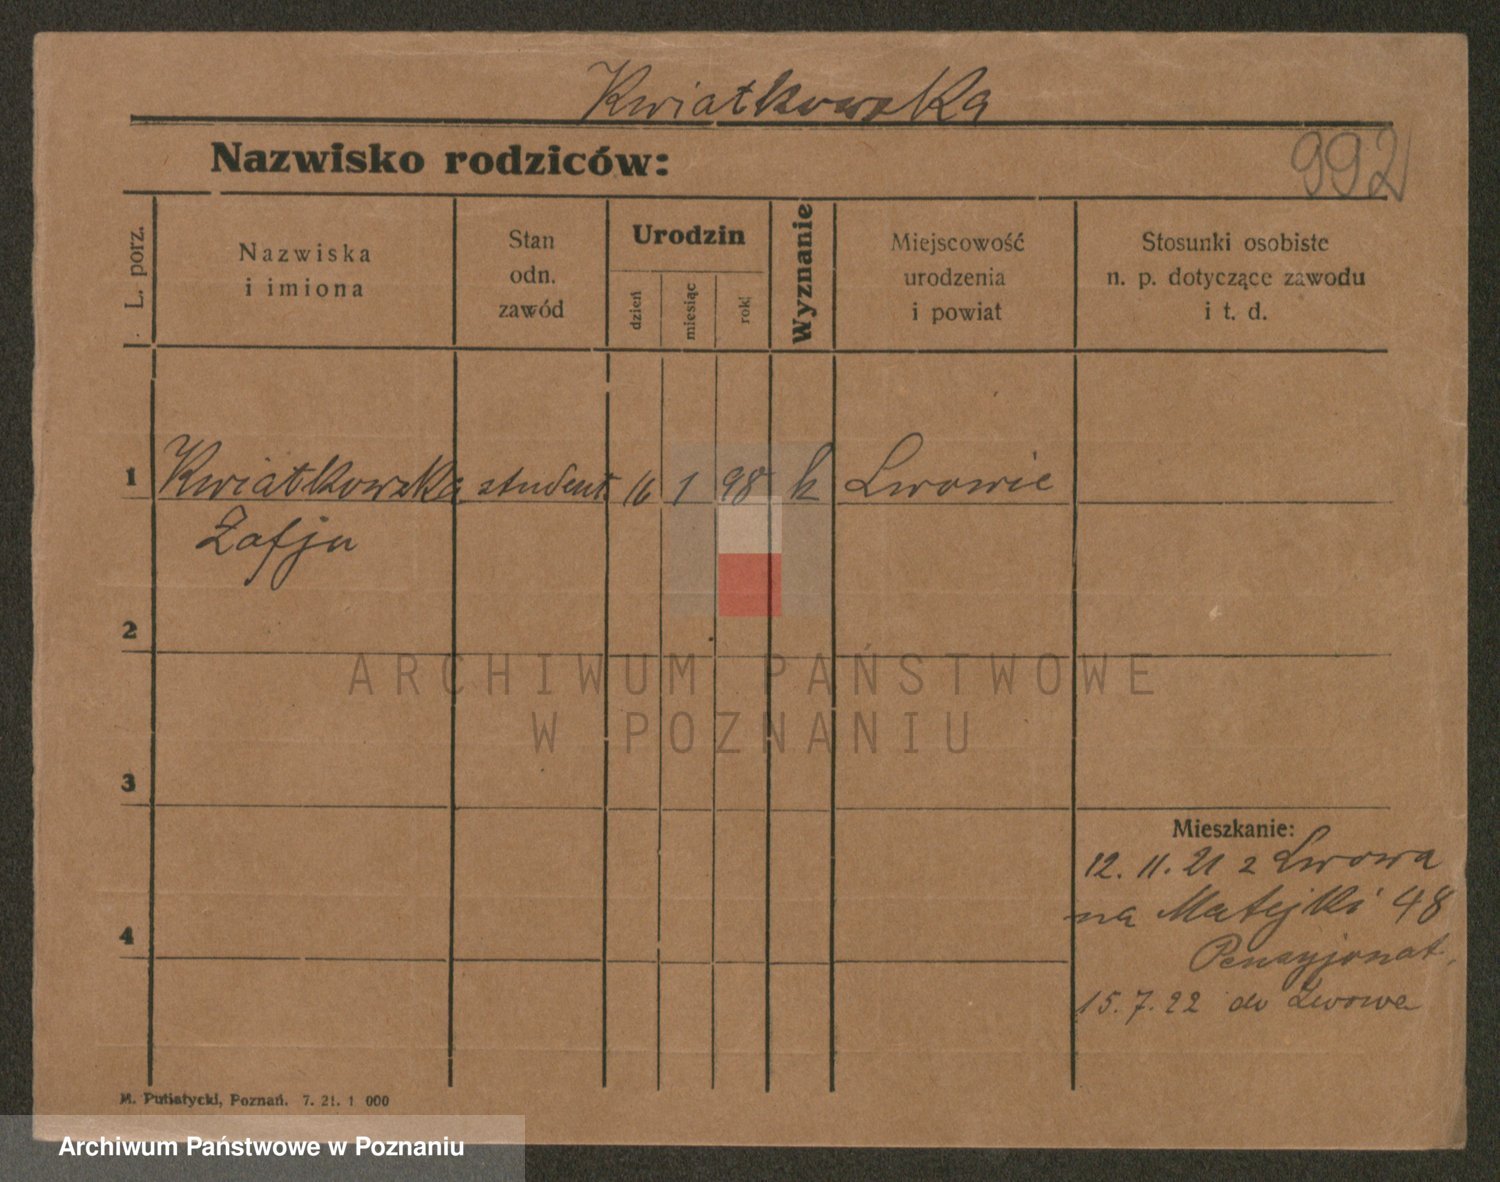 Kwiatkowska
Nazwisko rodziców:
992
L. porz.
Nazwiska
i imiona
Stan
odn.
zawód
Urodzin
dzień
miesiąc
rok
Wyznanie
Miejscowość
urodzenia
i powiat
Stosunki osobiste
n. p. dotyczące zawodu
i t. d.
1
Kwiatkowska student. 16 1 98 k Lwowie
Zofja
2
ARCHIWUM PAŃSTWOWE
W POZNANIU
3
Mieszkanie:
12. 11. 21 z Lwowa
na Matejki 48
Pensyjonat.
15. 7. 22 do Lwowa
4
M. Putiatycki, Poznań. 7. 21. 1 000
Archiwum Państwowe w Poznaniu